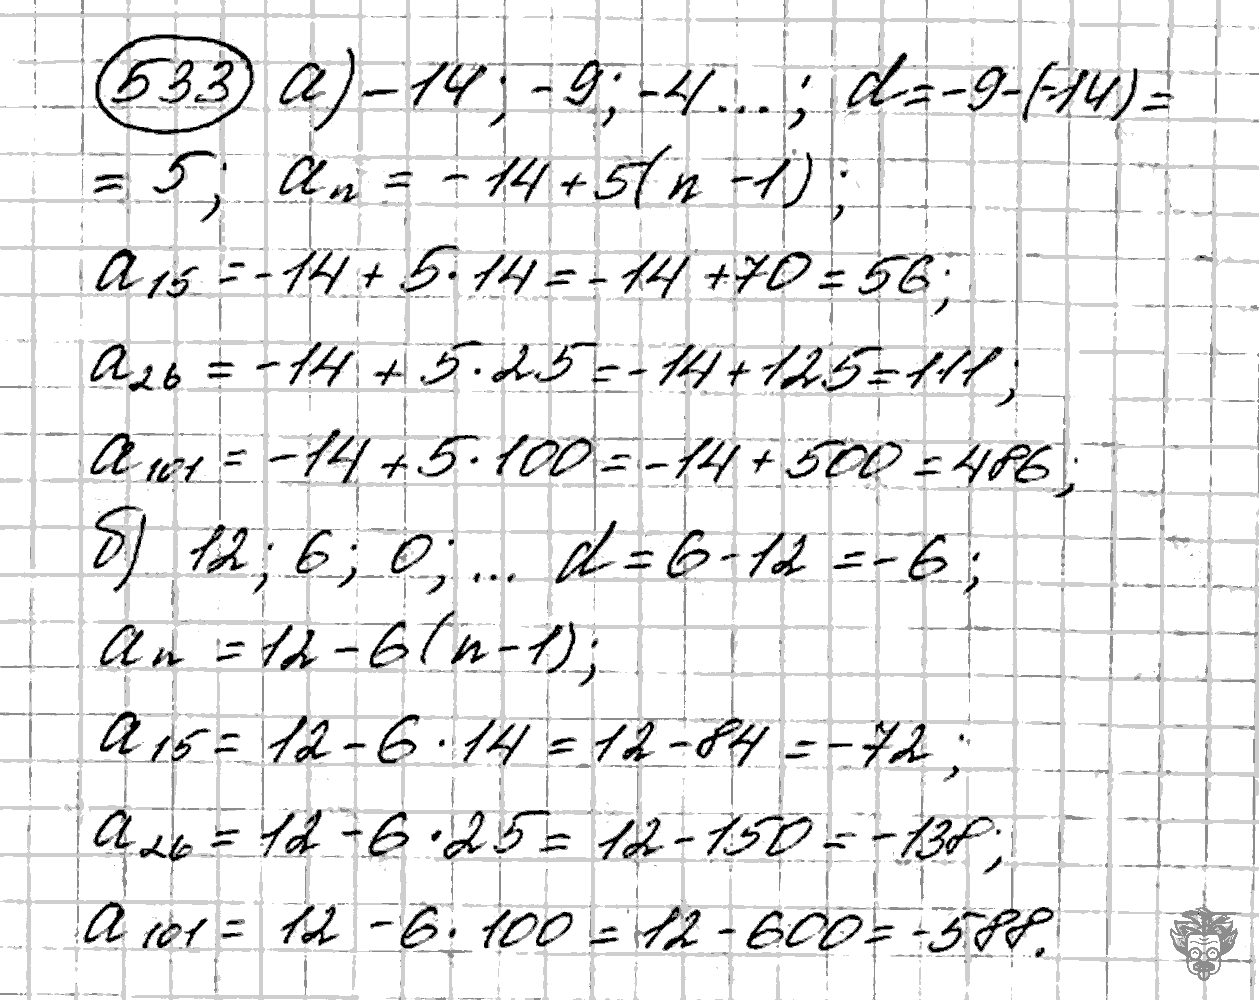 533 а) -14; -9; -4...; d=-9-(-14)=
= 5; aₙ = -14+5(n-1);
a₁₅ = -14+5·14=-14+70=56;
a₂₆ = -14+5·25=-14+125=111;
a₁₀₁ = -14+5·100=-14+500=486;
б) 12; 6; 0; ... d=6-12=-6;
aₙ =12-6(n-1);
a₁₅ = 12-6·14=12-84=-72;
a₂₆ = 12-6·25= 12-150=-138;
a₁₀₁ = 12-6·100=12-600=-588.